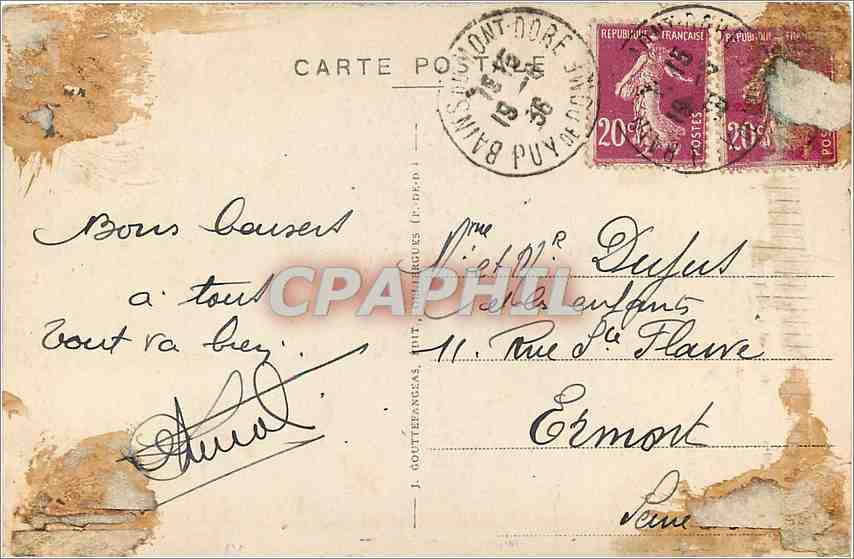 CARTE POSTALE
BAINS DU MONT-DORE
PUY DE DOME
15 -8
36
REPUBLIQUE FRANÇAISE
20c
POSTES
REPUBLIQUE FRANÇAISE
20c
POS
Bons baisers
à tous
tout va bien.
Mme et Mr Dufus
et les enfants
11. Rue Ste Flaive
Ermont
Seine
J. GOUTTEFANGEAS, ÉDIT., OLLIERGUES (P.-DE-D.)
CPAPHIL